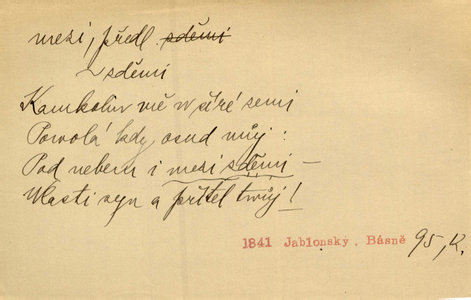 mezi, předl. sděmi
sděmi
Kamkoliv mě w šíré zemi
Powolá kdy osud můj:
Pod nebem i mezi sděmi –
Vlasti syn a přítel twůj!
1841 Jablonský. Básně 95, K.